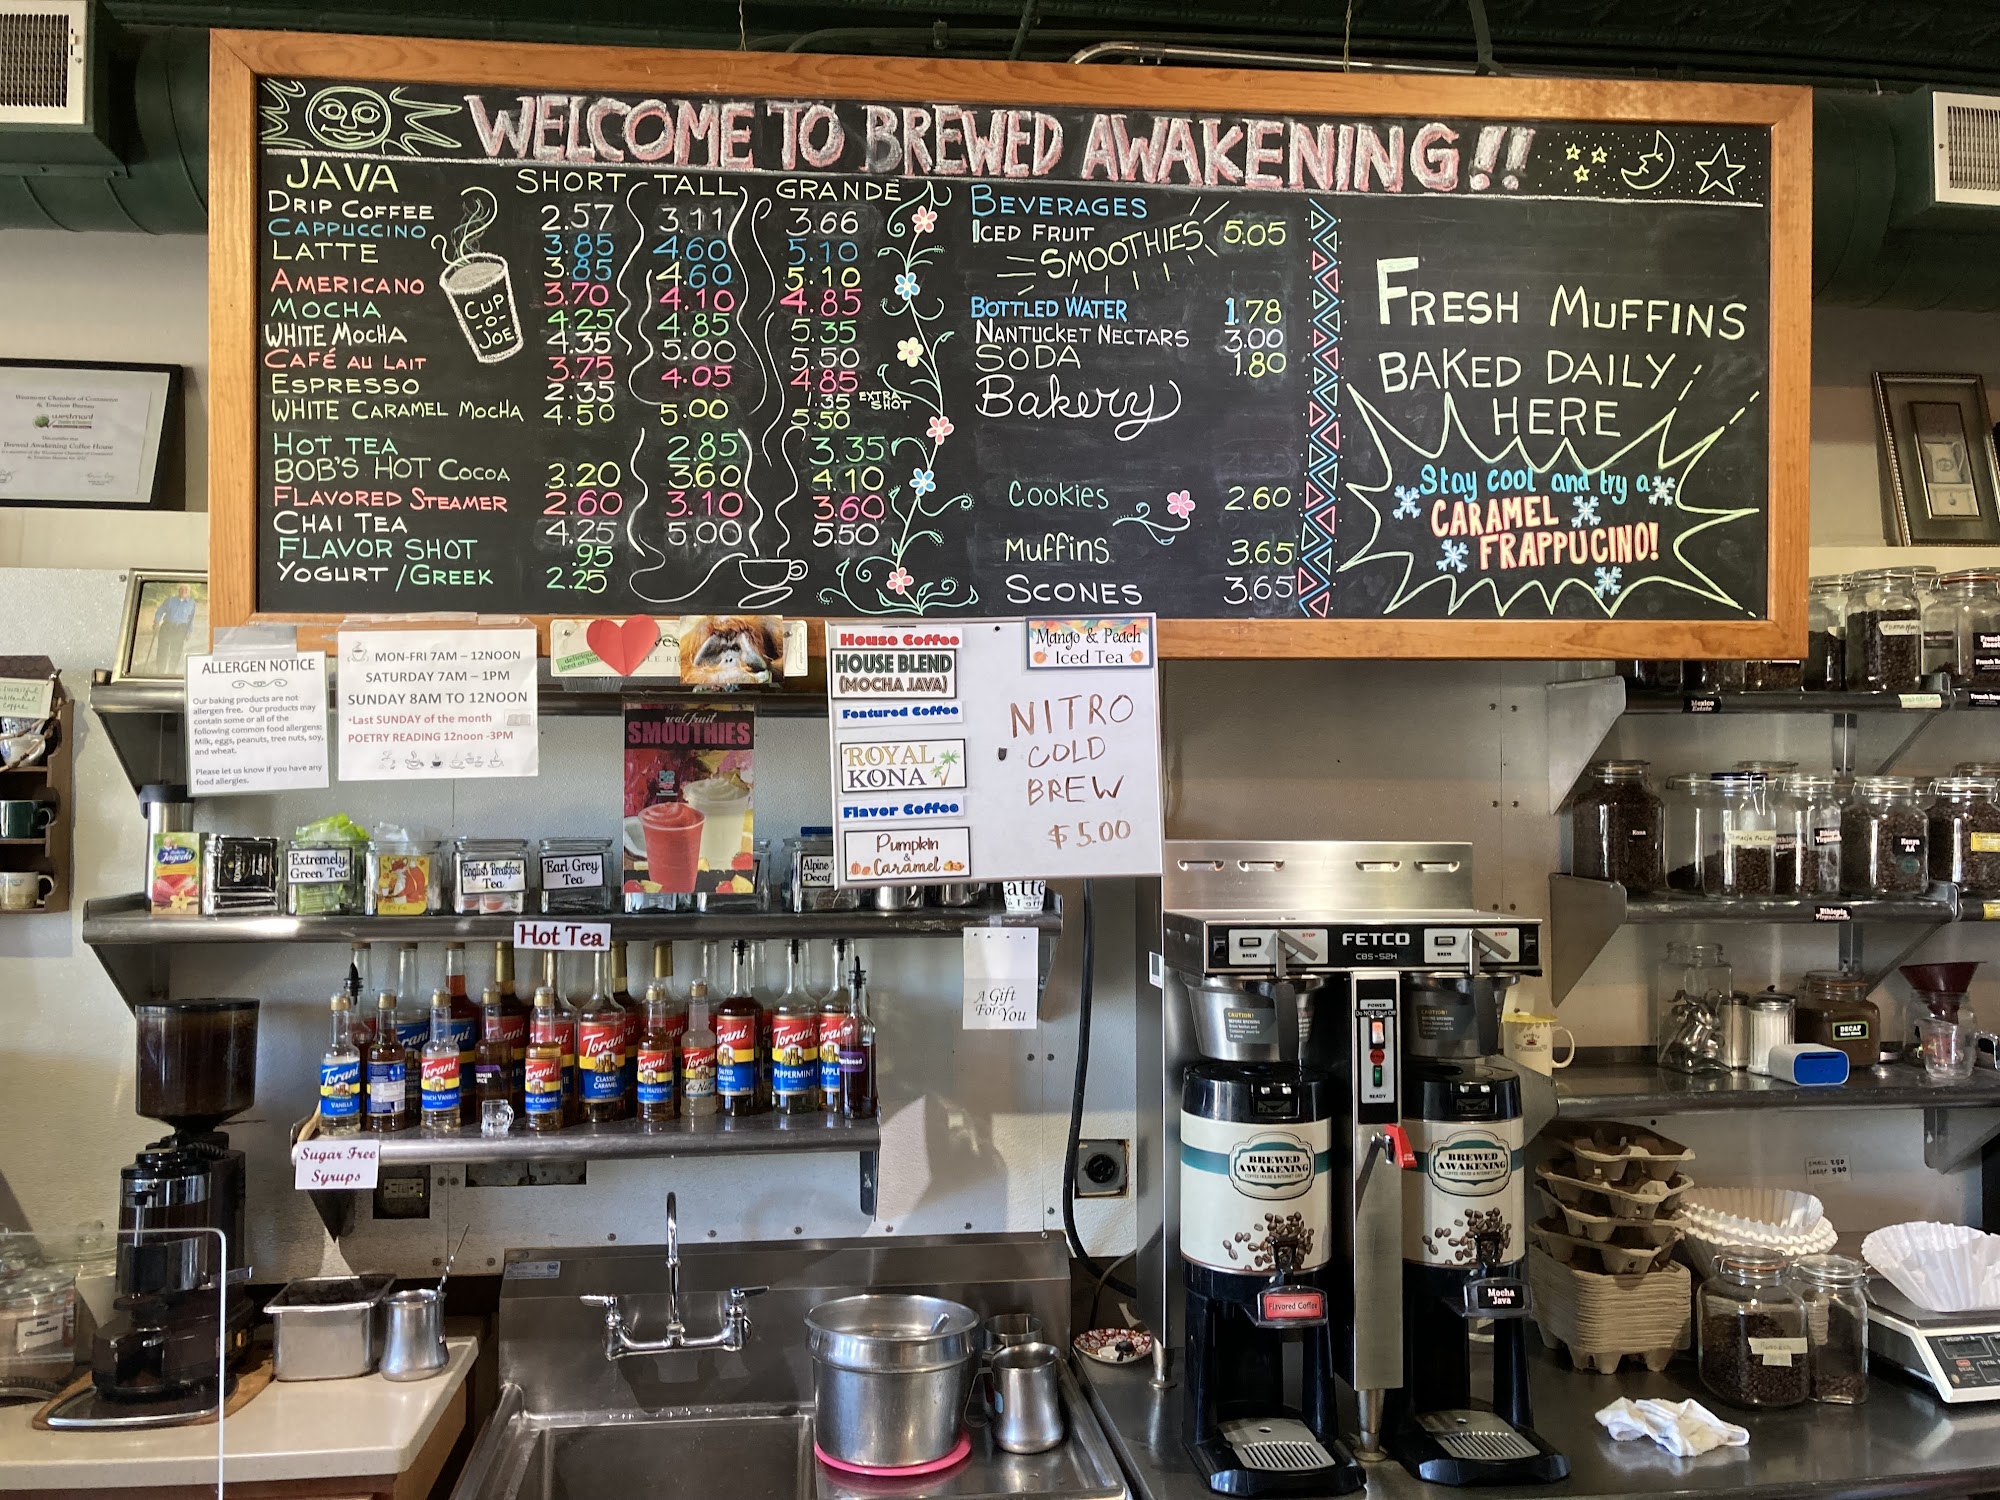 WELCOME TO BREWED AWAKENING!!
JAVA SHORT TALL GRANDE
DRIP COFFEE 2.57 3.11 3.66
CAPPUCCINO 3.85 4.60 5.10
LATTE 3.85 4.60 5.10
AMERICANO 3.70 4.10 4.85
MOCHA 4.25 4.85 5.35
WHITE MOCHA 4.35 5.00 5.50
CAFÉ AU LAIT 3.75 4.05 4.85
ESPRESSO 2.35 1.35 EXTRA SHOT
WHITE CARAMEL MOCHA 4.50 5.00 5.50
HOT TEA 2.85 3.35
BOB'S HOT COCOA 3.20 3.60 4.10
FLAVORED STEAMER 2.60 3.10 3.60
CHAI TEA 4.25 5.00 5.50
FLAVOR SHOT .95
YOGURT / GREEK 2.25
CUP
-O-
JOE
BEVERAGES
ICED FRUIT
SMOOTHIES 5.05
BOTTLED WATER 1.78
NANTUCKET NECTARS 3.00
SODA 1.80
Bakery
COOKIES 2.60
MUFFINS 3.65
SCONES 3.65
FRESH MUFFINS
BAKED DAILY
HERE
Stay cool and try a
CARAMEL
FRAPPUCINO!
Westmont Chamber of Commerce
& Tourism Bureau
westmont
Brewed Awakening Coffee House
ALLERGEN NOTICE
Our baking products are not
allergen free. Our products may
contain some or all of the
following common food allergens:
Milk, eggs, peanuts, tree nuts, soy,
and wheat.
Please let us know if you have any
food allergies.
MON-FRI 7AM – 12NOON
SATURDAY 7AM – 1PM
SUNDAY 8AM TO 12NOON
*Last SUNDAY of the month
POETRY READING 12noon -3PM
real fruit
SMOOTHIES
House Coffee
HOUSE BLEND
(MOCHA JAVA)
Featured Coffee
ROYAL
KONA
Flavor Coffee
Pumpkin
&
Caramel
Mango & Peach
Iced Tea
NITRO
COLD
BREW
$5.00
Extremely
Green Tea
English Breakfast
Tea
Earl Grey
Tea
Alpine
Decaf
Hot Tea
A Gift
For You
Torani
VANILLA
Torani
Torani
CLASSIC
CARAMEL
Torani
SALTED
CARAMEL
Torani
PEPPERMINT
APPLE
Sugar Free
Syrups
FETCO
CBS-52H
BREW STOP
BREW STOP
CAUTION!
CAUTION!
POWER
Do NOT Shut Off
READY
BREWED
AWAKENING
COFFEE HOUSE & INTERNET CAFE
BREWED
AWAKENING
COFFEE HOUSE & INTERNET CAFE
Flavored Coffee
Mocha
Java
Mexico
Kona
Kenya
AA
Ethiopia
Yirgacheffe
French
Roast
DECAF